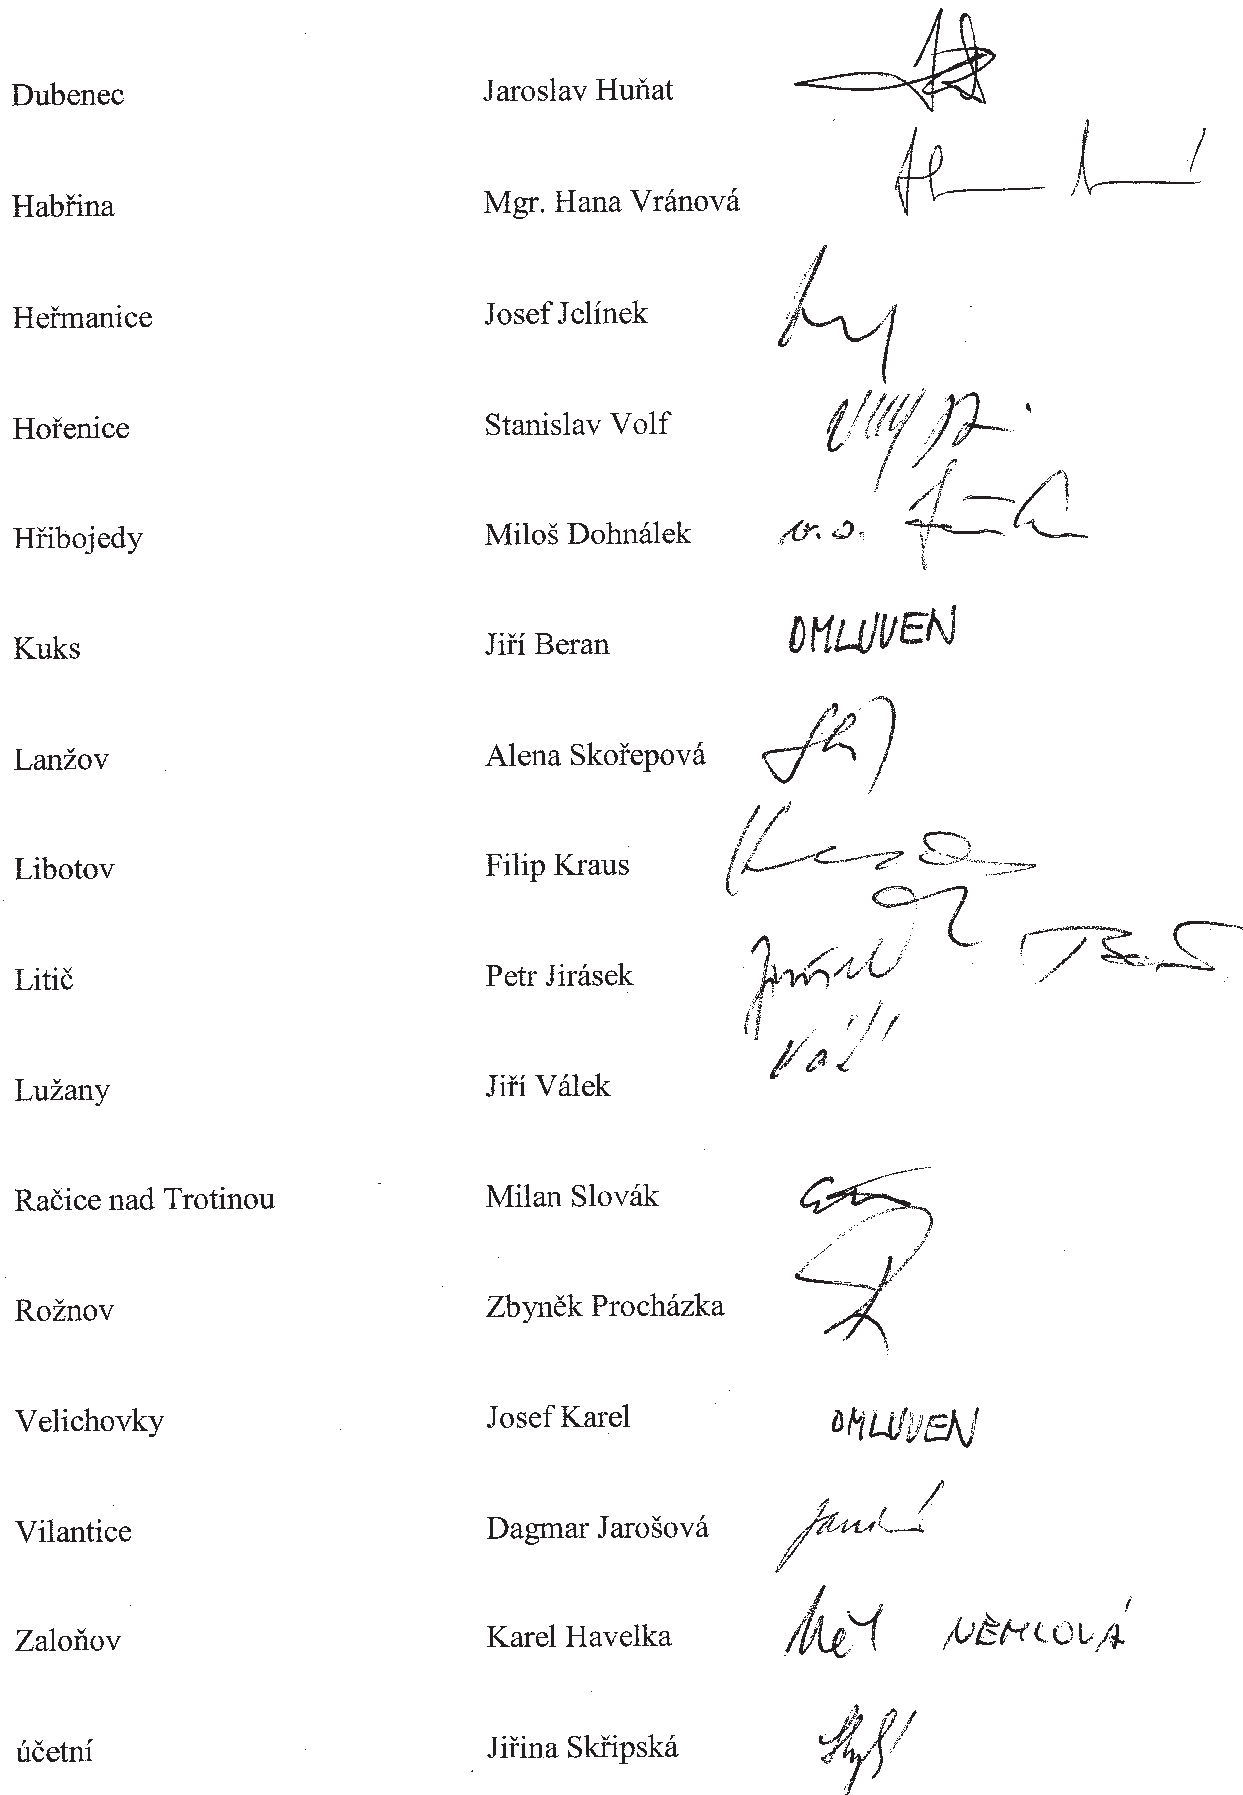 Dubenec Jaroslav Huňat
Habřina Mgr. Hana Vránová
Heřmanice Josef Jelínek
Hořenice Stanislav Volf
Hřibojedy Miloš Dohnálek v.o.
Kuks Jiří Beran OMLUVEN
Lanžov Alena Skořepová
Libotov Filip Kraus
Litič Petr Jirásek
Lužany Jiří Válek
Račice nad Trotinou Milan Slovák
Rožnov Zbyněk Procházka
Velichovky Josef Karel OMLUVEN
Vilantice Dagmar Jarošová
Zaloňov Karel Havelka NĚMCOVÁ
účetní Jiřina Skřipská